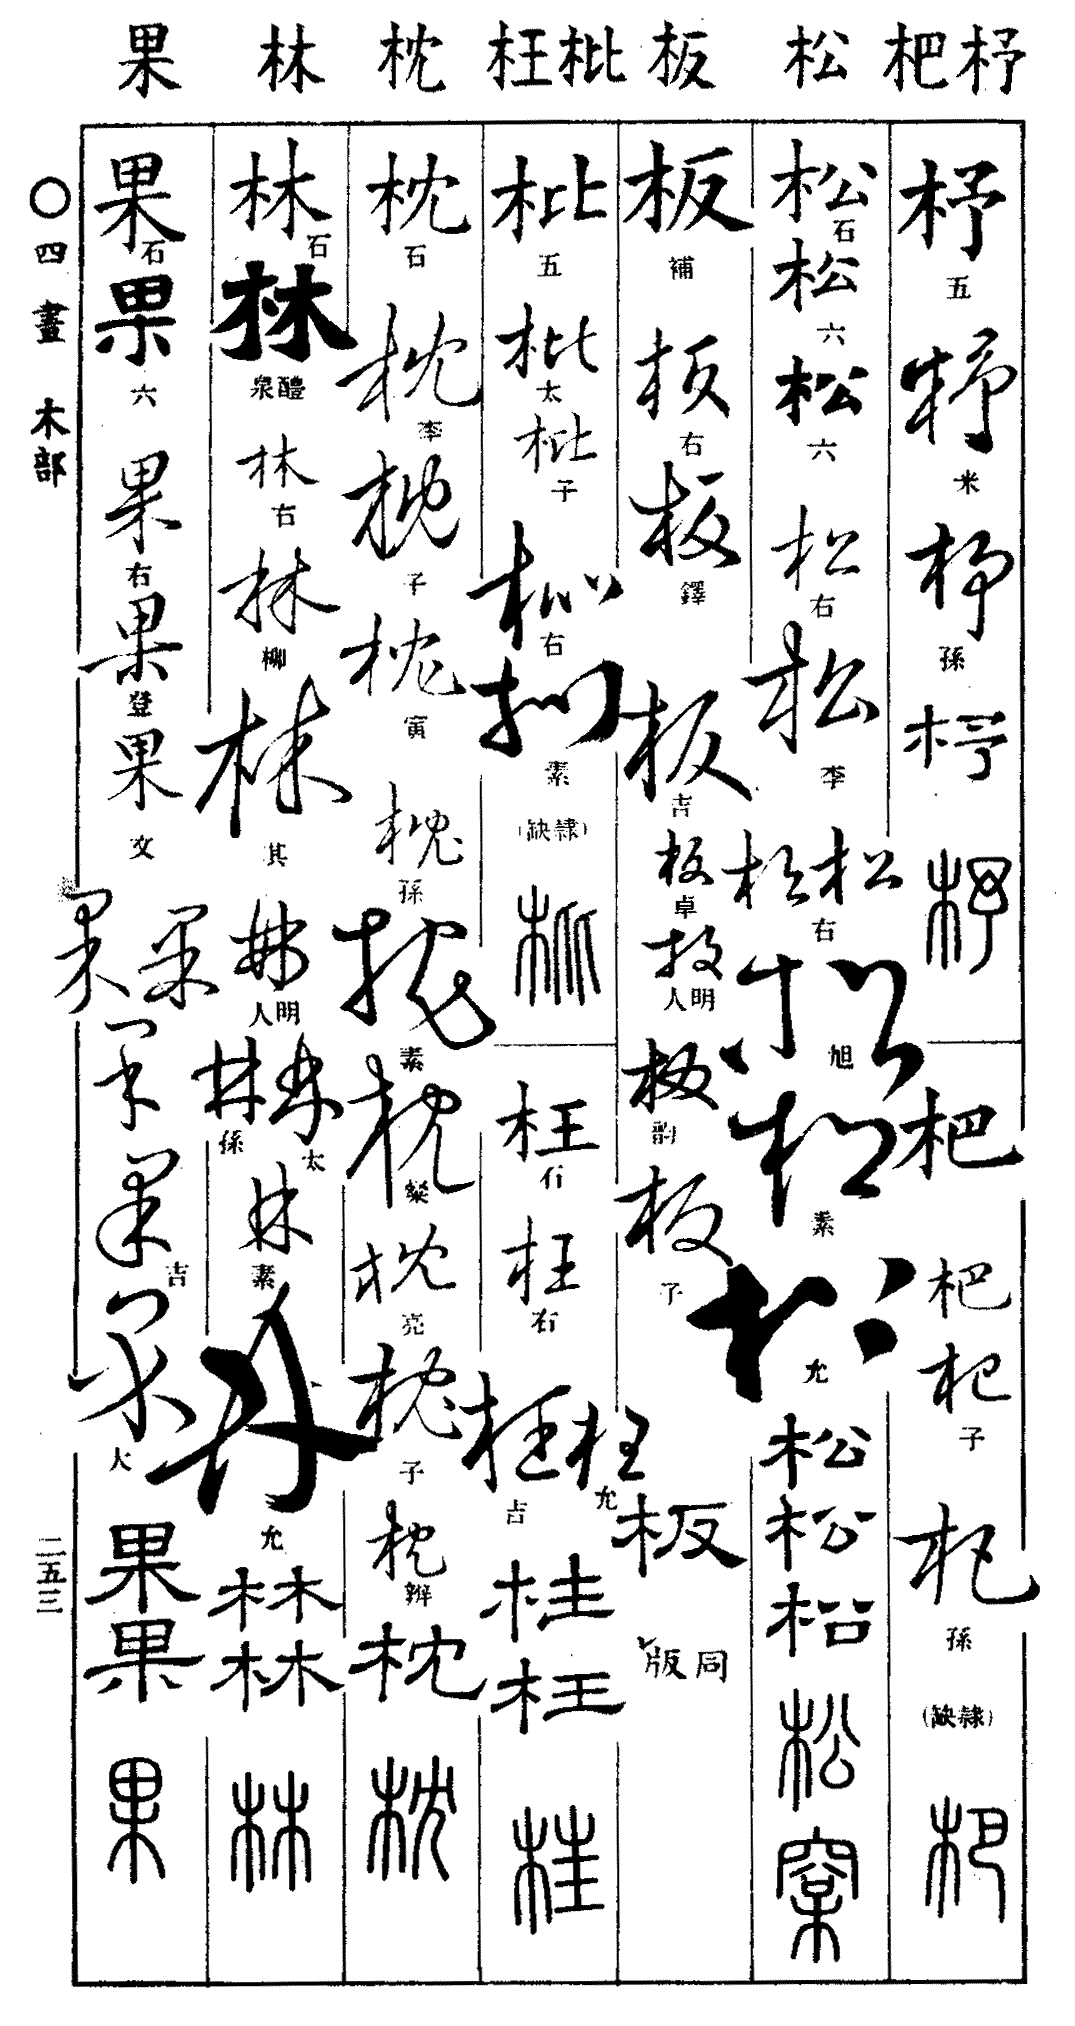 杼杷松板枇枉枕林果
杼
五
杼
米
杼
孫
杼
杼
杷
杷
杷
子
杷
孫
(隸缺)
杷
松
石
松
六
松
六
松
右
松
李
松松
右
松
旭
松
素
松
允
松
松
松
松
板
補
板
右
板
鐸
板
吉
板
卓
板
明人
板
韵
板
子
板
同版
枇
五
枇
太
枇
子
枇
右
枇
素
(隸缺)
枇
枉
行
枉
右
枉
允
枉
吉
枉
枉
枉
枕
石
枕
李
枕
子
枕
寅
枕
孫
枕
素
枕
粲
枕
亮
枕
子
枕
辨
枕
枕
林
石
林
醴泉
林
右
林
柳
林
其
林
明人
林
太
林
孫
林
素
林
允
林
林
林
果
石
果
六
果
右
果
登
果
文
果果
果
果
吉
果
大
果
果
果
○四畫 木部
二五三